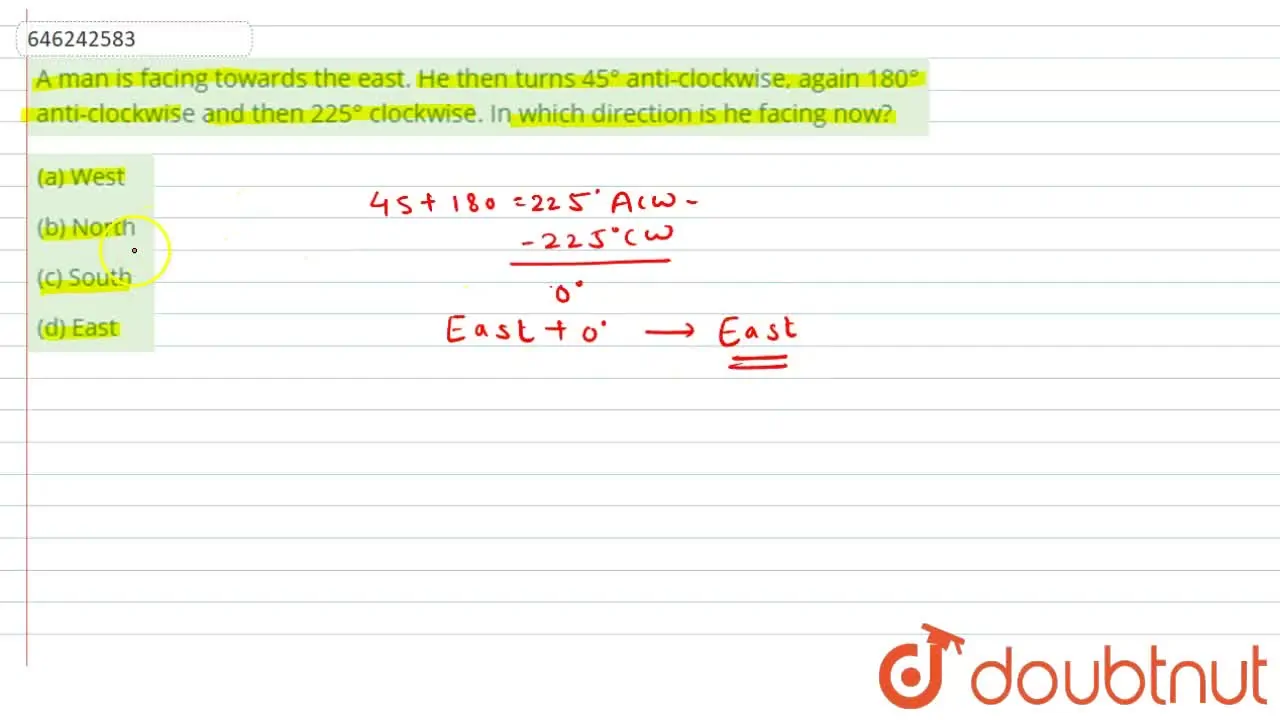 646242583
A man is facing towards the east. He then turns 45° anti-clockwise, again 180°
anti-clockwise and then 225° clockwise. In which direction is he facing now?
(a) West
(b) North
(c) South
(d) East
45+ 180 = 225° ACW -
- 225° CW
0°
East + 0° → East
doubtnut